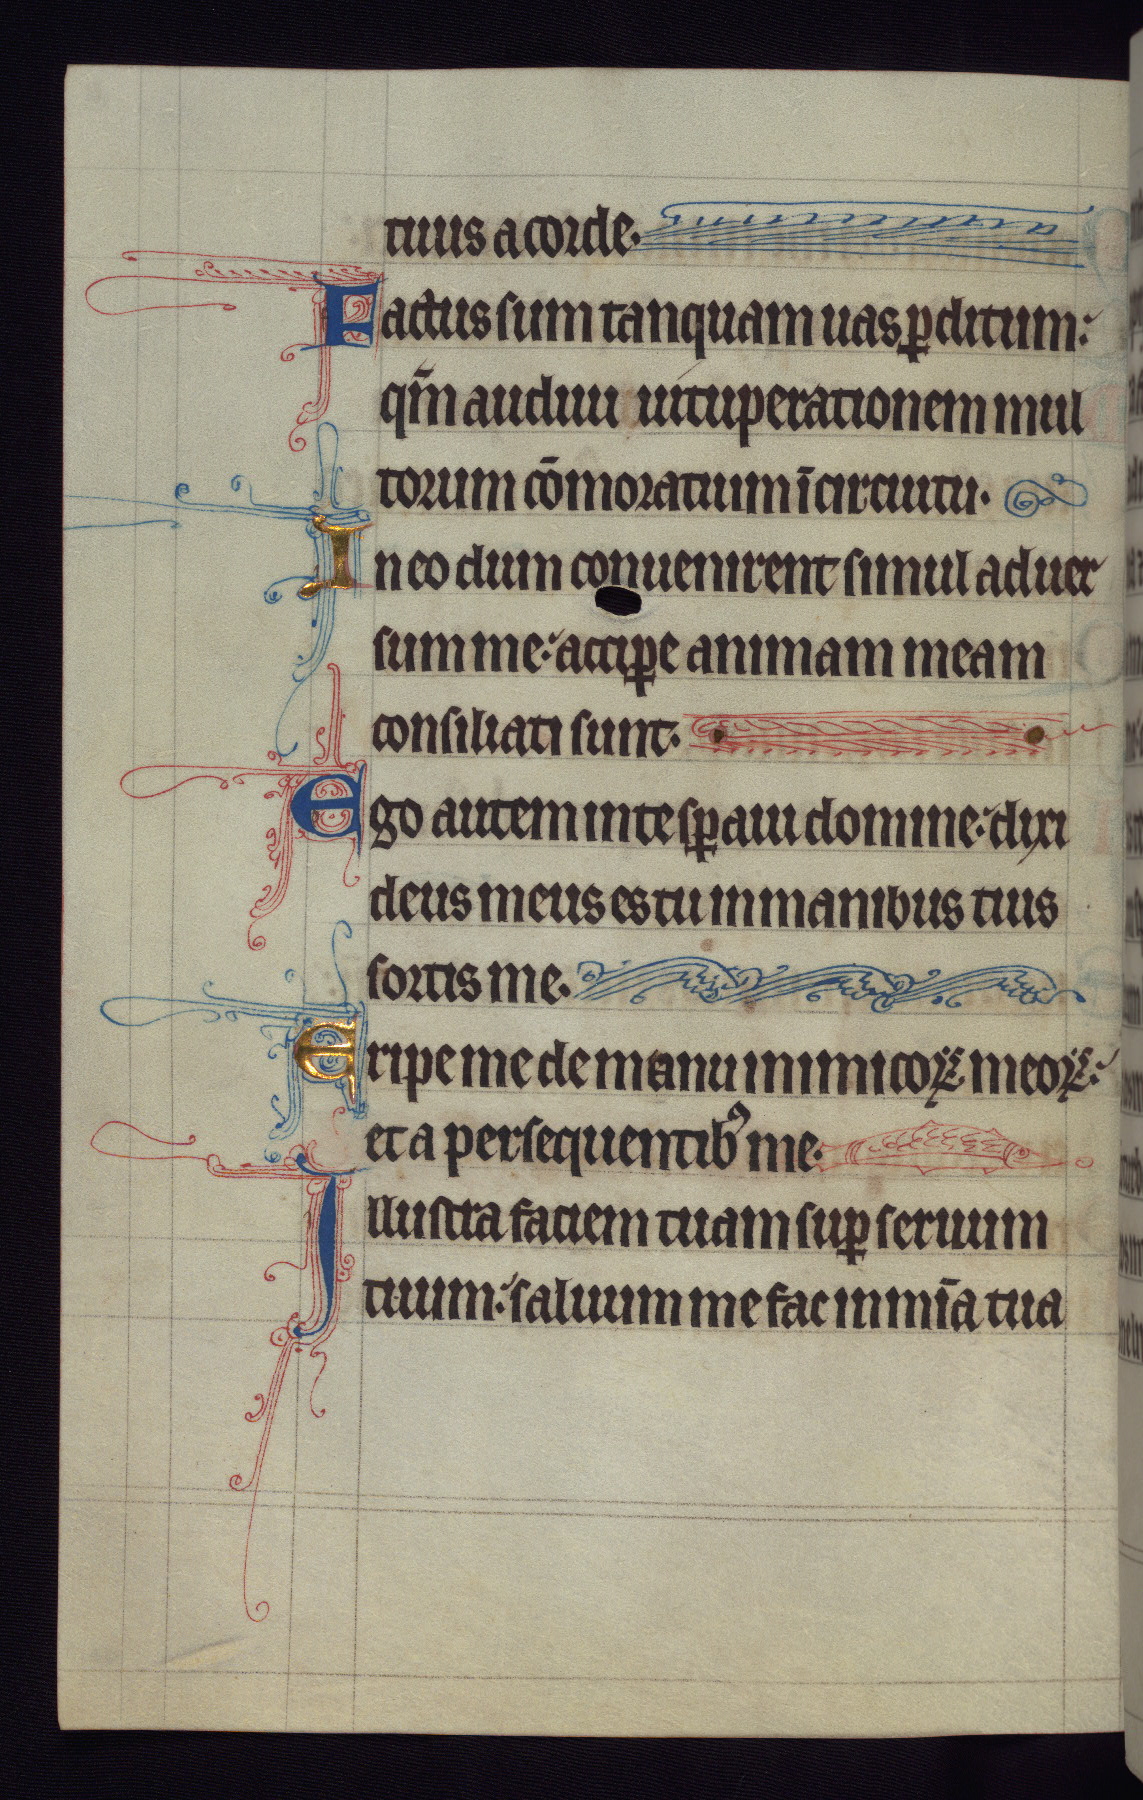 tuus a corde.
Factus sum tanquam uas ꝑditum:
qm̄ audiui uituperationem mul
torum cōmorantium ī circuitu.
In eo dum conuenirent simul aduer
sum me: acciꝑe animam meam
consiliati sunt.
Ego autem in te sꝑaui domine: dixi
deus meus es tu in manibus tuis
sortis me.
Eripe me de manu inimicoꝝ meoꝝ:
et a persequentibꝰ me.
Illustra faciem tuam suꝑ seruum
tuum: saluum me fac in mīa tua